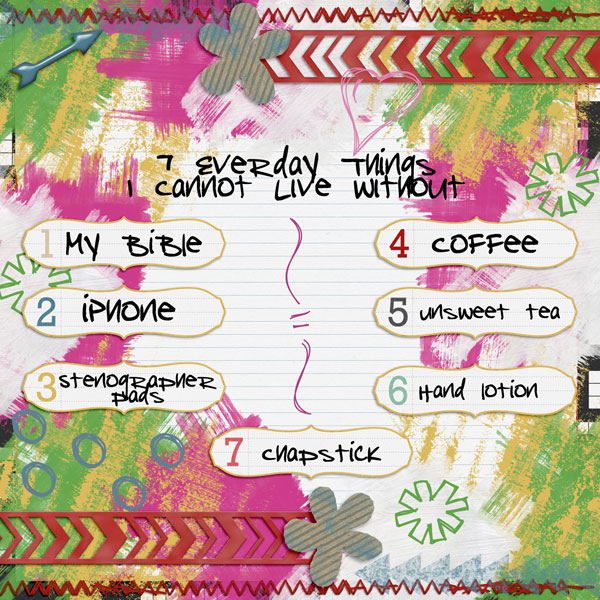 7 Everday Things
I cannot Live without
1 My Bible
2 iPhone
3 stenographer
pads
4 coffee
5 unsweet tea
6 Hand lotion
7 chapstick